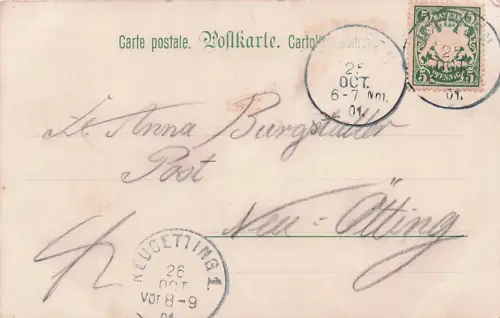 Carte postale. Postkarte.
5 BAYERN 5
5 PFENNIG 5
25
OCT.
6-7 Nm.
01.
01.
Anna Burgstaller
Post
Neu-Ötting
NEUOETTING 1.
26
OCT
VOR 8-9
01.